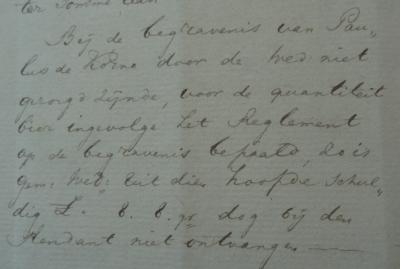 ter Somme van
Bij de begravenis van Pau„
lus de Korne door de Wed: niet
gezorgd zijnde, voor de quantiteit
bier ingevolge het Reglement
op de begravenis bepaald, zo is
gem: Wed: uit dien hoofde schul„
dig £. 8. 8. gr dog bij den
Rendant niet ontvangen